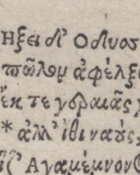 Ηξει δι' Οδυος
πῶλομ ἀφέλξ
ἐκ τε γδραιᾶς
* ἀλλ' ἰθι ναῦς,
Ἀγαμέμνον